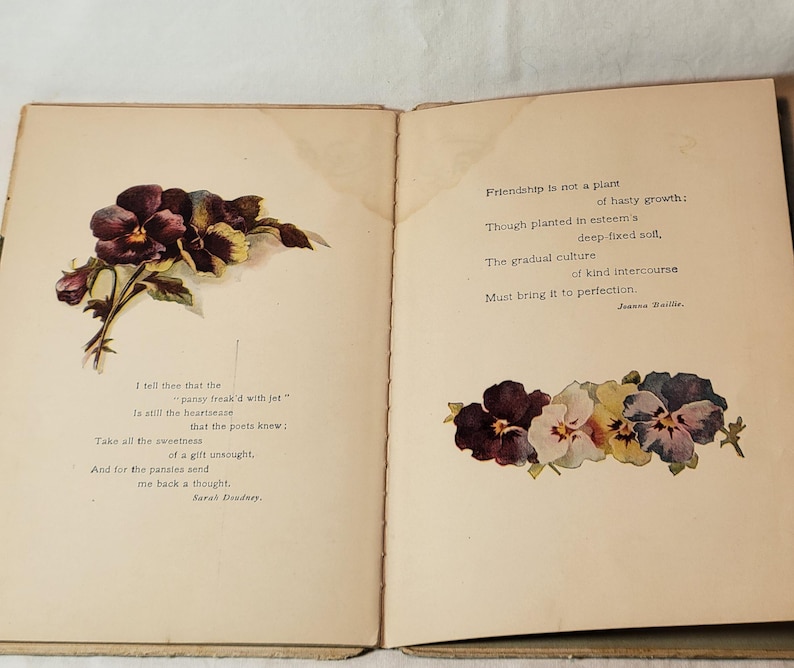 I tell thee that the
"pansy freak'd with jet"
Is still the heartsease
that the poets knew;
Take all the sweetness
of a gift unsought,
And for the pansies send
me back a thought.
Sarah Doudney.
Friendship is not a plant
of hasty growth;
Though planted in esteem's
deep-fixed soil,
The gradual culture
of kind intercourse
Must bring it to perfection.
Joanna Baillie.